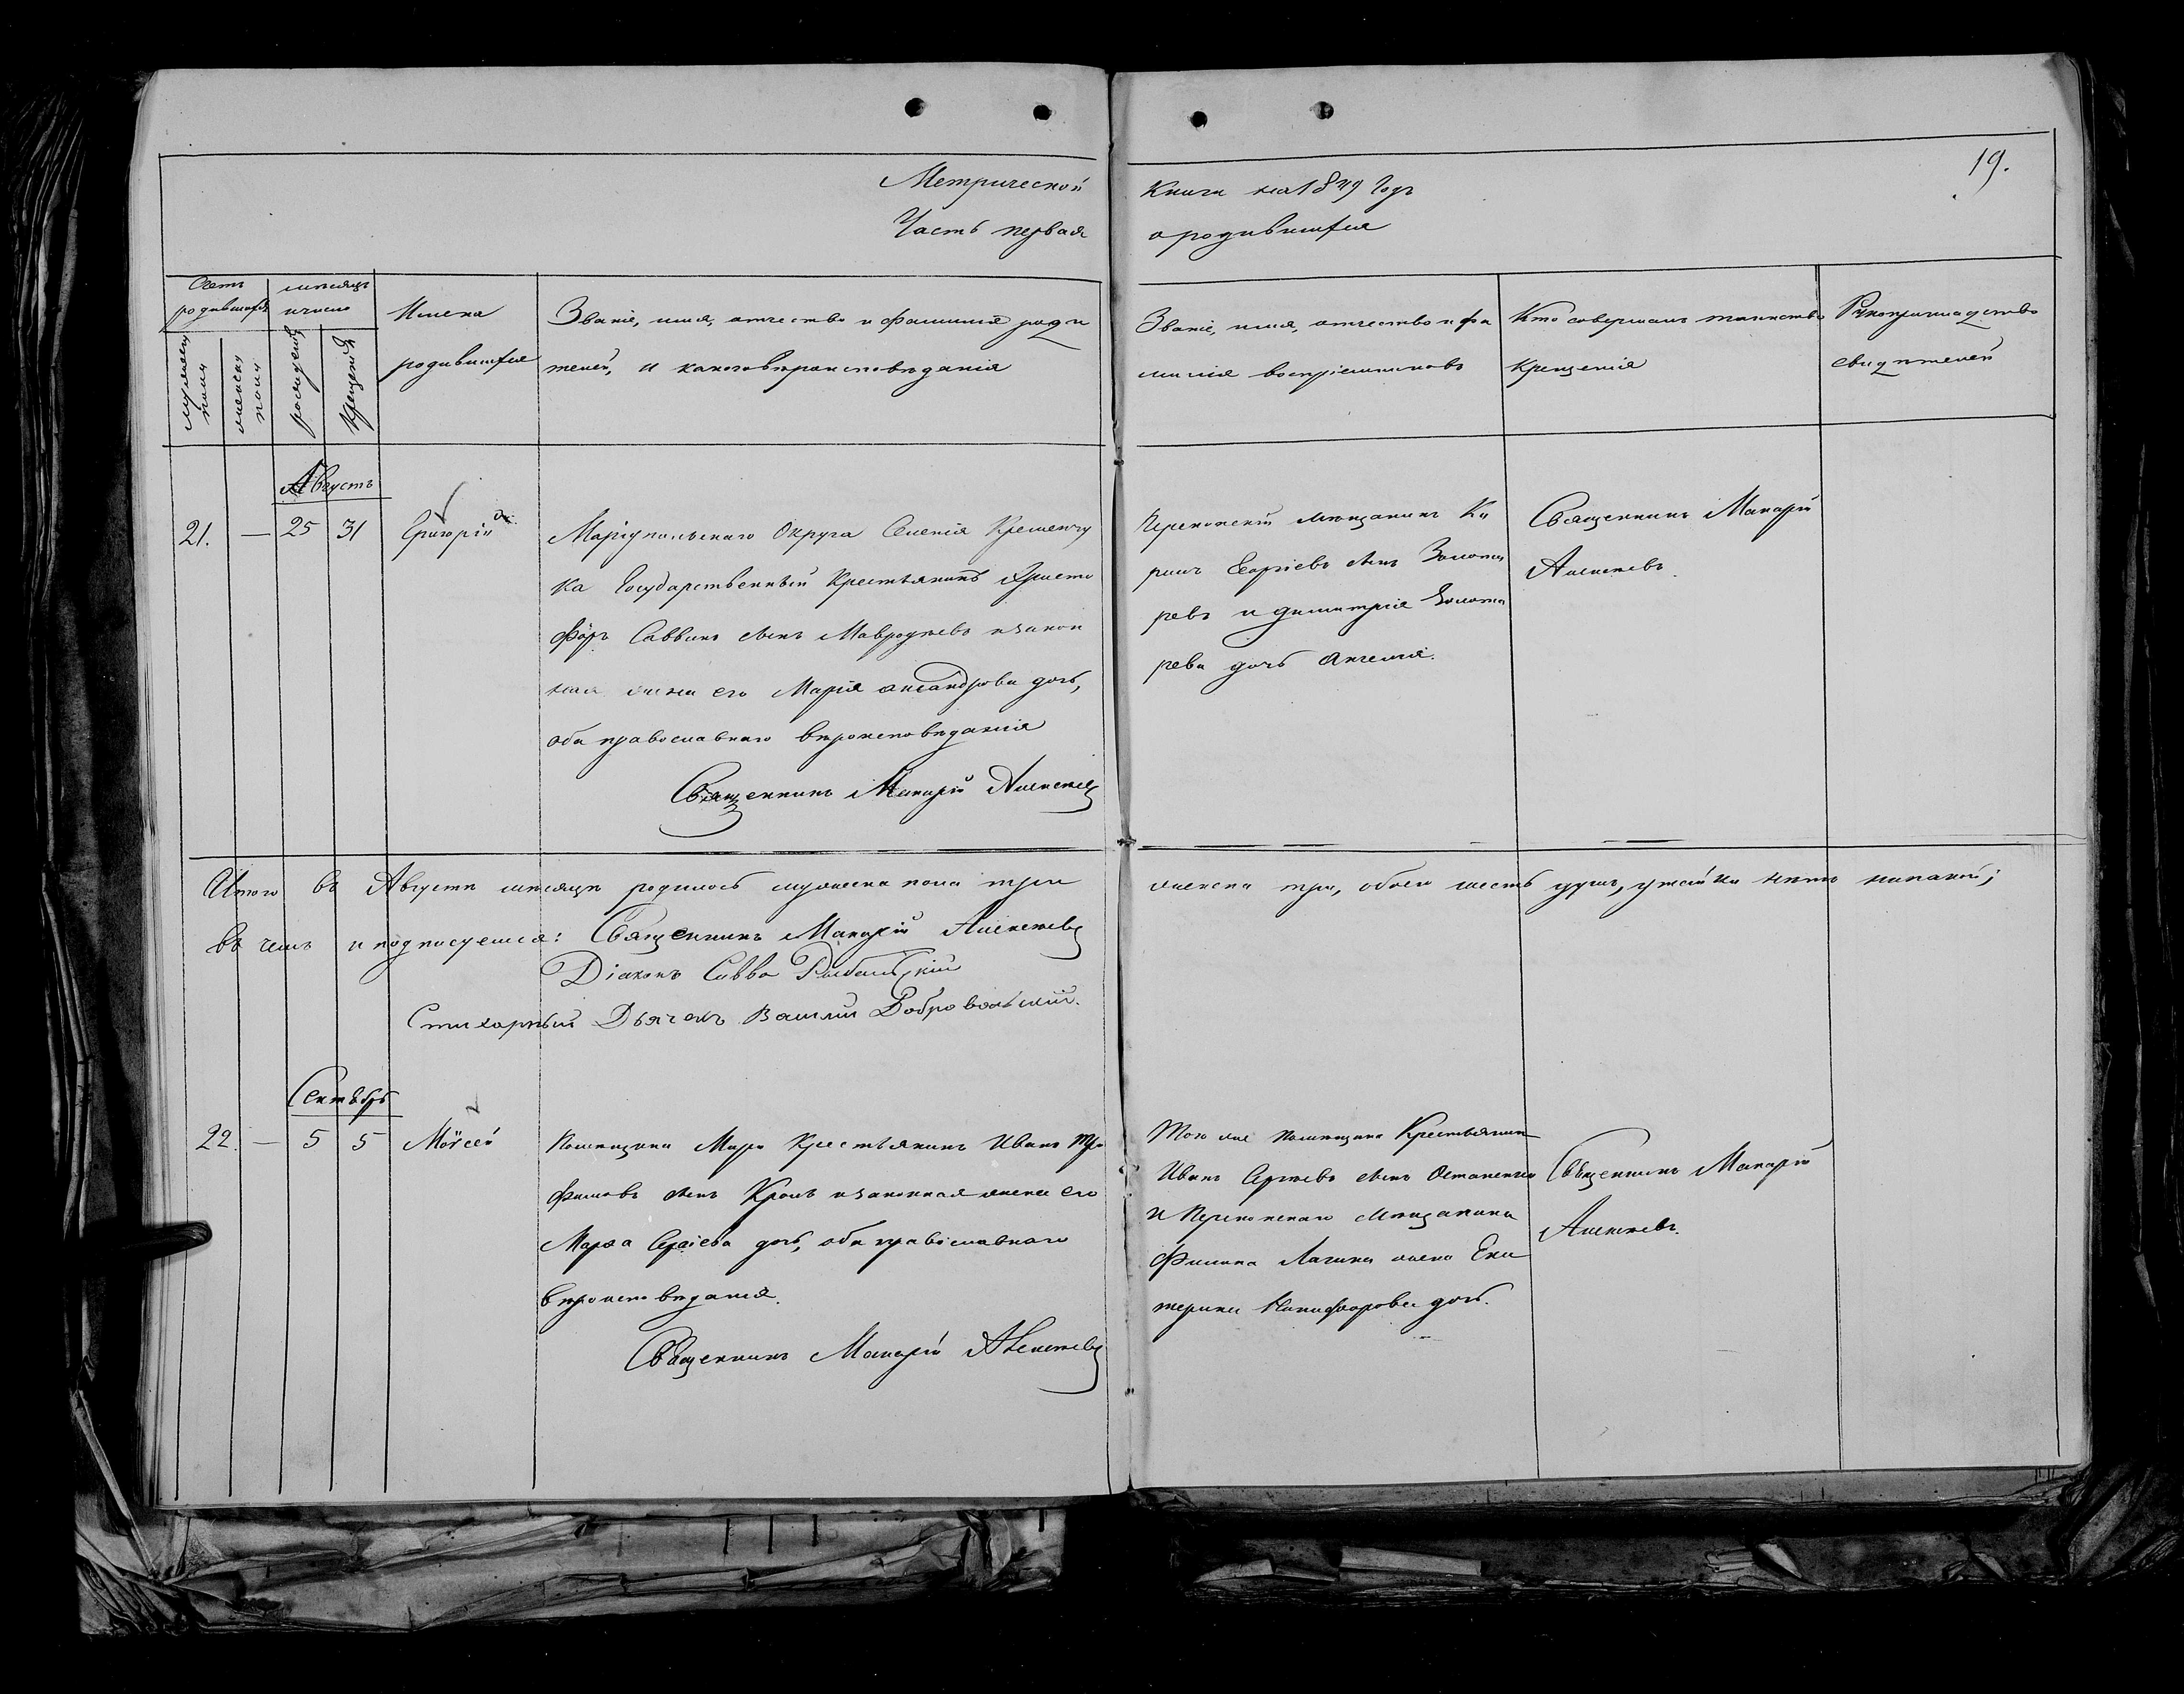 19.
Метрической
Часть первая
Книги на 18 годъ
о родившихся
Счетъ
родившихся
мужеска
пола
женска
пола
мѣсяцъ
и число
рожденія
крещенія
Имена
родившихся
Званіе, имя, отчество и фамилія роди
телей, и какого вѣроисповѣданія
Званіе, имя, отчество и фа
милія воспріемниковъ
Кто совершалъ таинство
крещенія
Рукоприкладство
свидѣтелей
Августъ
21. — 25 31 Григорій
Маріупольскаго Округа Селенія Кременчу
ка Государственный Крестьянинъ Христо
форъ Саввинъ сынъ Мавроджевъ и закон
ная жена его Марія дочь,
оба православнаго вѣроисповѣданія
Священникъ Макарій Алексѣевъ
Перекопскій мѣщанинъ Ки
рилъ Георгіевъ сынъ Золота
ревъ и Димитрія Золота
рева дочь Ангелія.
Священникъ Макарій
Алексѣевъ.
Итого въ Августѣ мѣсяцѣ родилось мужеска пола три
женска три, обоего шесть душъ, утайки нѣтъ никакой;
въ чемъ и подписуемся: Священникъ Макарій Алексѣевъ
Діаконъ Савва Рыбальскій
Стихарный Дьячекъ Василій Добровольскій.
Сентябрь
22. — 5 5 Моѵсей
Помѣщика Крестьянинъ Иванъ Тро
фимовъ сынъ и законная жена его
Марѳа Сергіева дочь, оба православнаго
вѣроисповѣданія.
Священникъ Макарій Алексѣевъ
Того же помѣщика Крестьянинъ
Иванъ Сергѣевъ сынъ Остапенко
и Перекопскаго мѣщанина
Филипа жена Ека
терина Никифорова дочь.
Священникъ Макарій
Алексѣевъ.